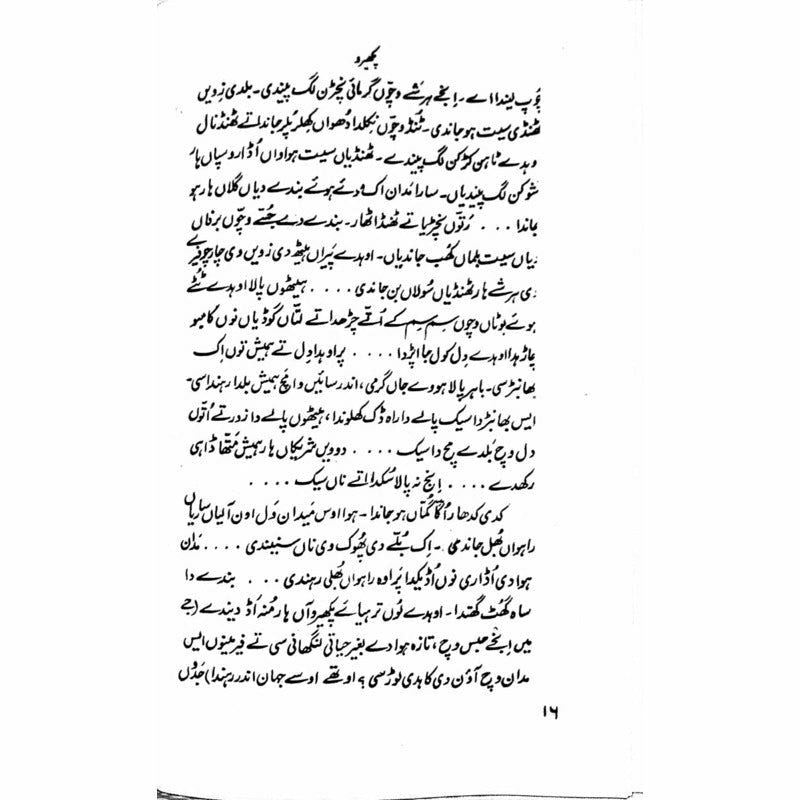 پکھیرو
چُوپ لیندا اے۔ اِنجے ہر شے وچوں گرمائی نچڑن لگ پیندی۔ بلدی زویں
ٹھنڈی سیت ہو جاندی۔ ٹنڈ وچوں نکلدا دھواں کھلر پلر جاندا تے ٹھنڈ نال
وہدے ٹاہن کڑکن لگ پیندے۔ ٹھنڈیاں سیت ہواواں اُڈار و سپاں ہار
شوکن لگ پیندیاں۔ سارا مَدان اک مُدئے ہوئے بندے دیاں گلاں ہار ہو
جاندا ... رُتّوں نچڑیا تے ٹھنڈا ٹھار۔ بندے دے جُثے وچوں برفاں
دیاں سیت بلماں کھُب جاندیاں۔ اوہدے پَیراں ہیٹھ دی زویں وی چار چوفیرے
دی ہر شے ہار ٹھنڈیاں سُولاں بن جاندی .... ہیٹھوں پالا اوہدے ٹُٹے
ہوئے بوٹاں وچوں سِم سِم کے اُتے چڑھدا تے لتاں گوڈیاں نوں کامبو
چاڑہدا اوہدے دِل کول جا اپڑدا .... پر اوہدا دِل تے ہمیش توں اِک
بھانبڑ سی۔ باہر پالا ہووے جاں گرمی، اندر سائیں وانگ ہمیش بلدا رہندا سی۔
ایس بھانبڑ دا سیک پالے دا راہ ڈک کھلوندا، ہیٹھوں پالے دا زور تے اُتوں
دل وچ بلدے مچ دا سیک .... دوویں شریکاں ہار ہمیش مُتھا ڈاہی
رکھدے .... اِنج نہ پالا سُکدا اتے ناں سیک ....
کدی کدھار اُکا گُمّاں ہو جاندا۔ ہوا اوس مَیدان وَل اون آلیاں ساریاں
راہواں بھُل جاندی۔ اِک بُلّے دی پھُوک وی ناں سنیندی .... مَدان
ہوا دی اُڈاری نوں اُڈیکدا پر اوہ راہواں بھُلی رہندی ... بندے دا
ساہ گھُٹ گھتدا۔ اوہدے لُوں ترہیائے پکھیروآں ہار مُنہ اَڈ دیندے (جے
میں اِنجے حبس وچ، تازہ ہوا دے بغیر حیاتی لنگھانی سی تے فیر مینوں ایس
مدان وچ آؤن دی کاہدی لوڑ سی؟ اوتھے اوسے جہان اندر رہندا) جَدوں
۱۶